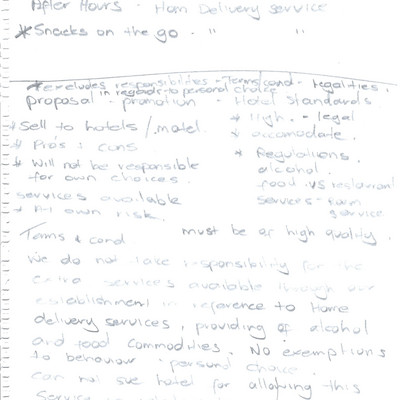 After Hours - Hom Delivery service
* Snacks on the go - " "
* excludes responsibilities - Terms & cond - legalities.
in regards to personal choice
proposal - promotion - Hotel standards
* Sell to hotels / motel. * High. - legal
* Pro's & cons * accomodate.
* Will not be responsible * Regulations.
for own choices. alcohol.
services available food vs restaurant
* At own risk. services - room service
Terms & cond must be of high quality.
We do not take responsibility for the
extra services available through our
establishment in reference to Home
delivery services, providing of alcohol
and food commodities. No exemptions
to behaviour - personal choice.
can not sue hotel for allowing this
Service